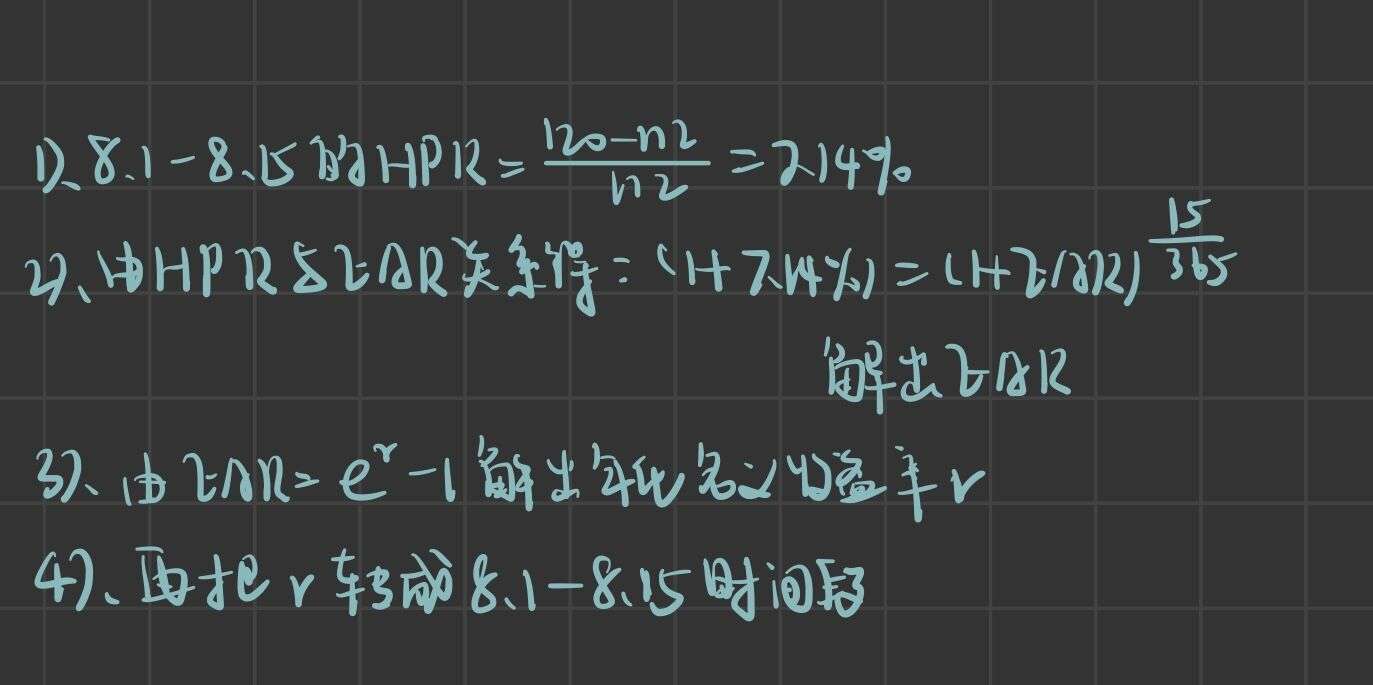 1)、8.1-8.15的HPR=\frac{120-112}{112}=7.14%
2)、由HPR与EAR关系得:(1+7.14%)=(1+EAR)^{\frac{15}{365}}
解出EAR
3)、由EAR=e^r-1解出年化名义收益率r
4)、再把r转成8.1-8.15时间段